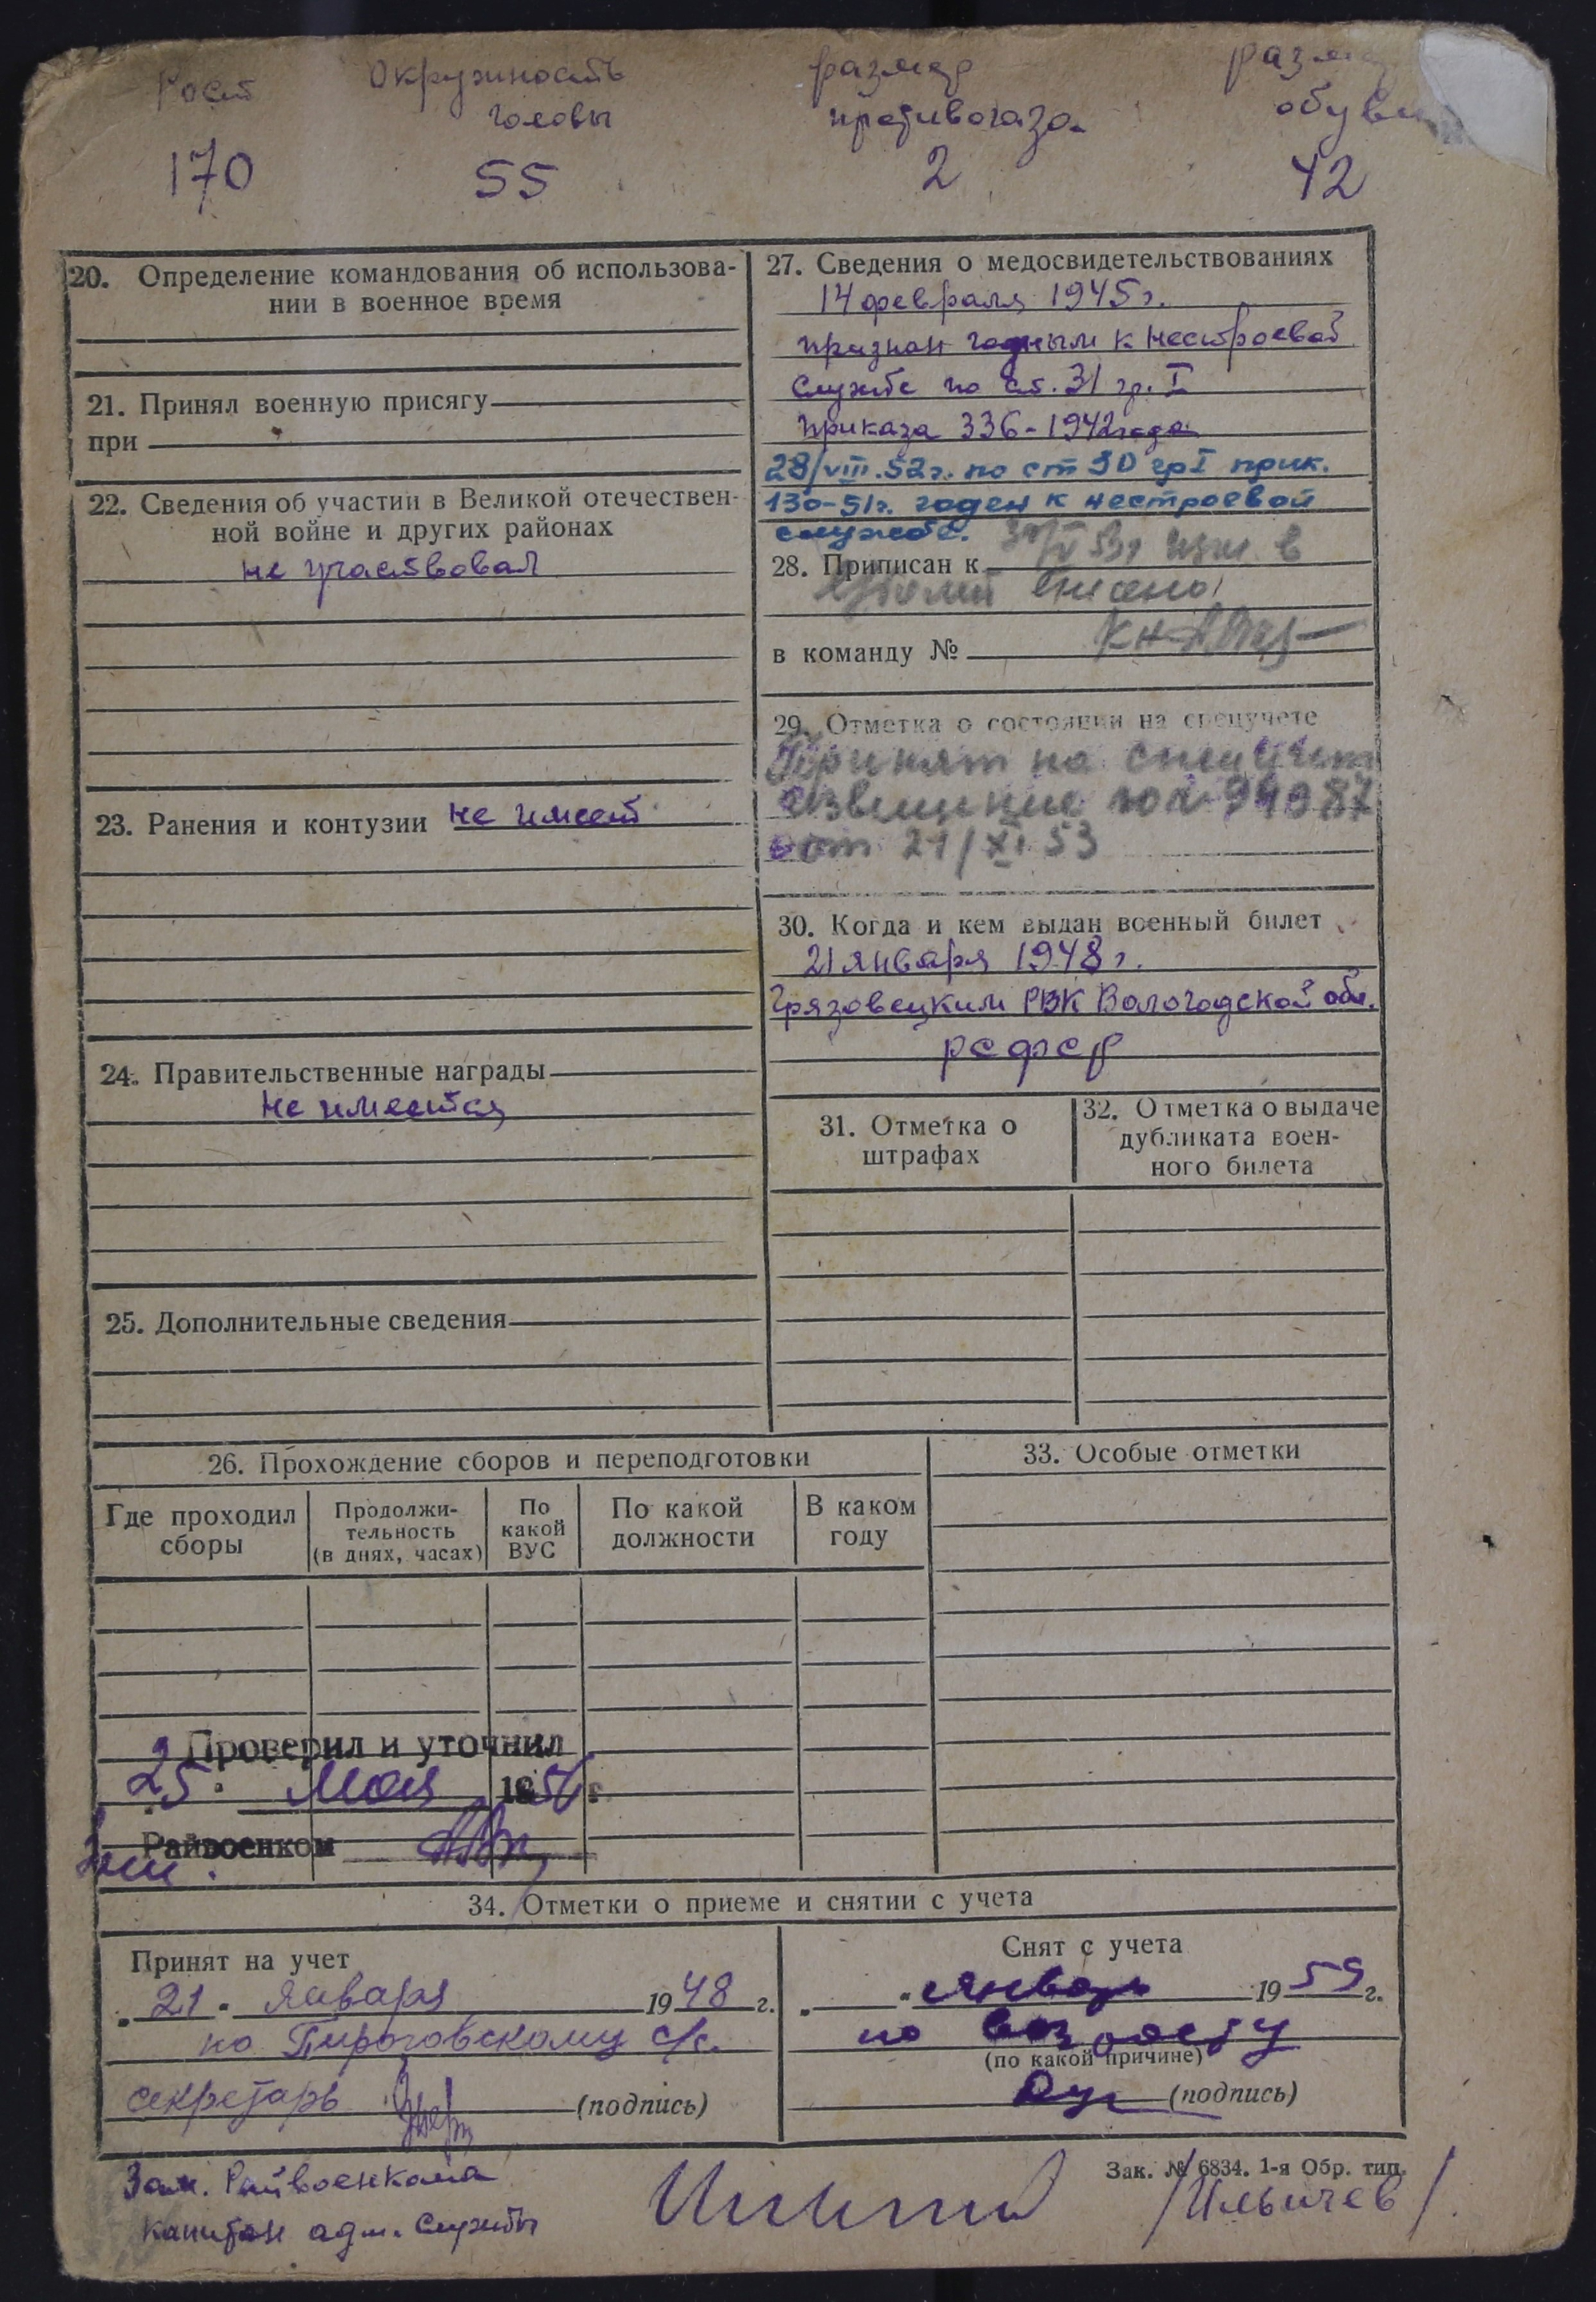 Рост
170
Окружность
головы
55
размер
противогаза
2
размер
обуви
42
20. Определение командования об использова-
нии в военное время
21. Принял военную присягу
при
22. Сведения об участии в Великой отечествен-
ной войне и других районах
не участвовал
23. Ранения и контузии не имеет
24. Правительственные награды
не имеется
25. Дополнительные сведения
27. Сведения о медосвидетельствованиях
14 февраля 1945 г.
признан годным к нестроевой
службе по ст. 31 гр. I
приказа 336-1942 года
28/VIII.52г. по ст 30 гр I прик.
130-51г. годен к нестроевой
службе.
28. Приписан к
в команду №
29. Отметка о состоянии на спецучете
Принят на спецучет
извещение 99987
от 21/XI 53
30. Когда и кем выдан военный билет
21 января 1948 г.
Грязовецким РВК Вологодской обл.
РСФСР
31. Отметка о
штрафах
32. Отметка о выдаче
дубликата воен-
ного билета
26. Прохождение сборов и переподготовки
Где проходил
сборы
Продолжи-
тельность
(в днях, часах)
По
какой
ВУС
По какой
должности
В каком
году
33. Особые отметки
Проверил и уточнил
25 мая 1954 г.
Райвоенком
34. Отметки о приеме и снятии с учета
Принят на учет
21. января 1948 г.
по Пироговскому с/с.
секретарь (подпись)
Снят с учета
январь 1959 г.
по возрасту
(по какой причине)
(подпись)
Зак. № 6834. 1-я Обр. тип.
Зам. Райвоенкома
капитан адм. службы
/Ильичев/